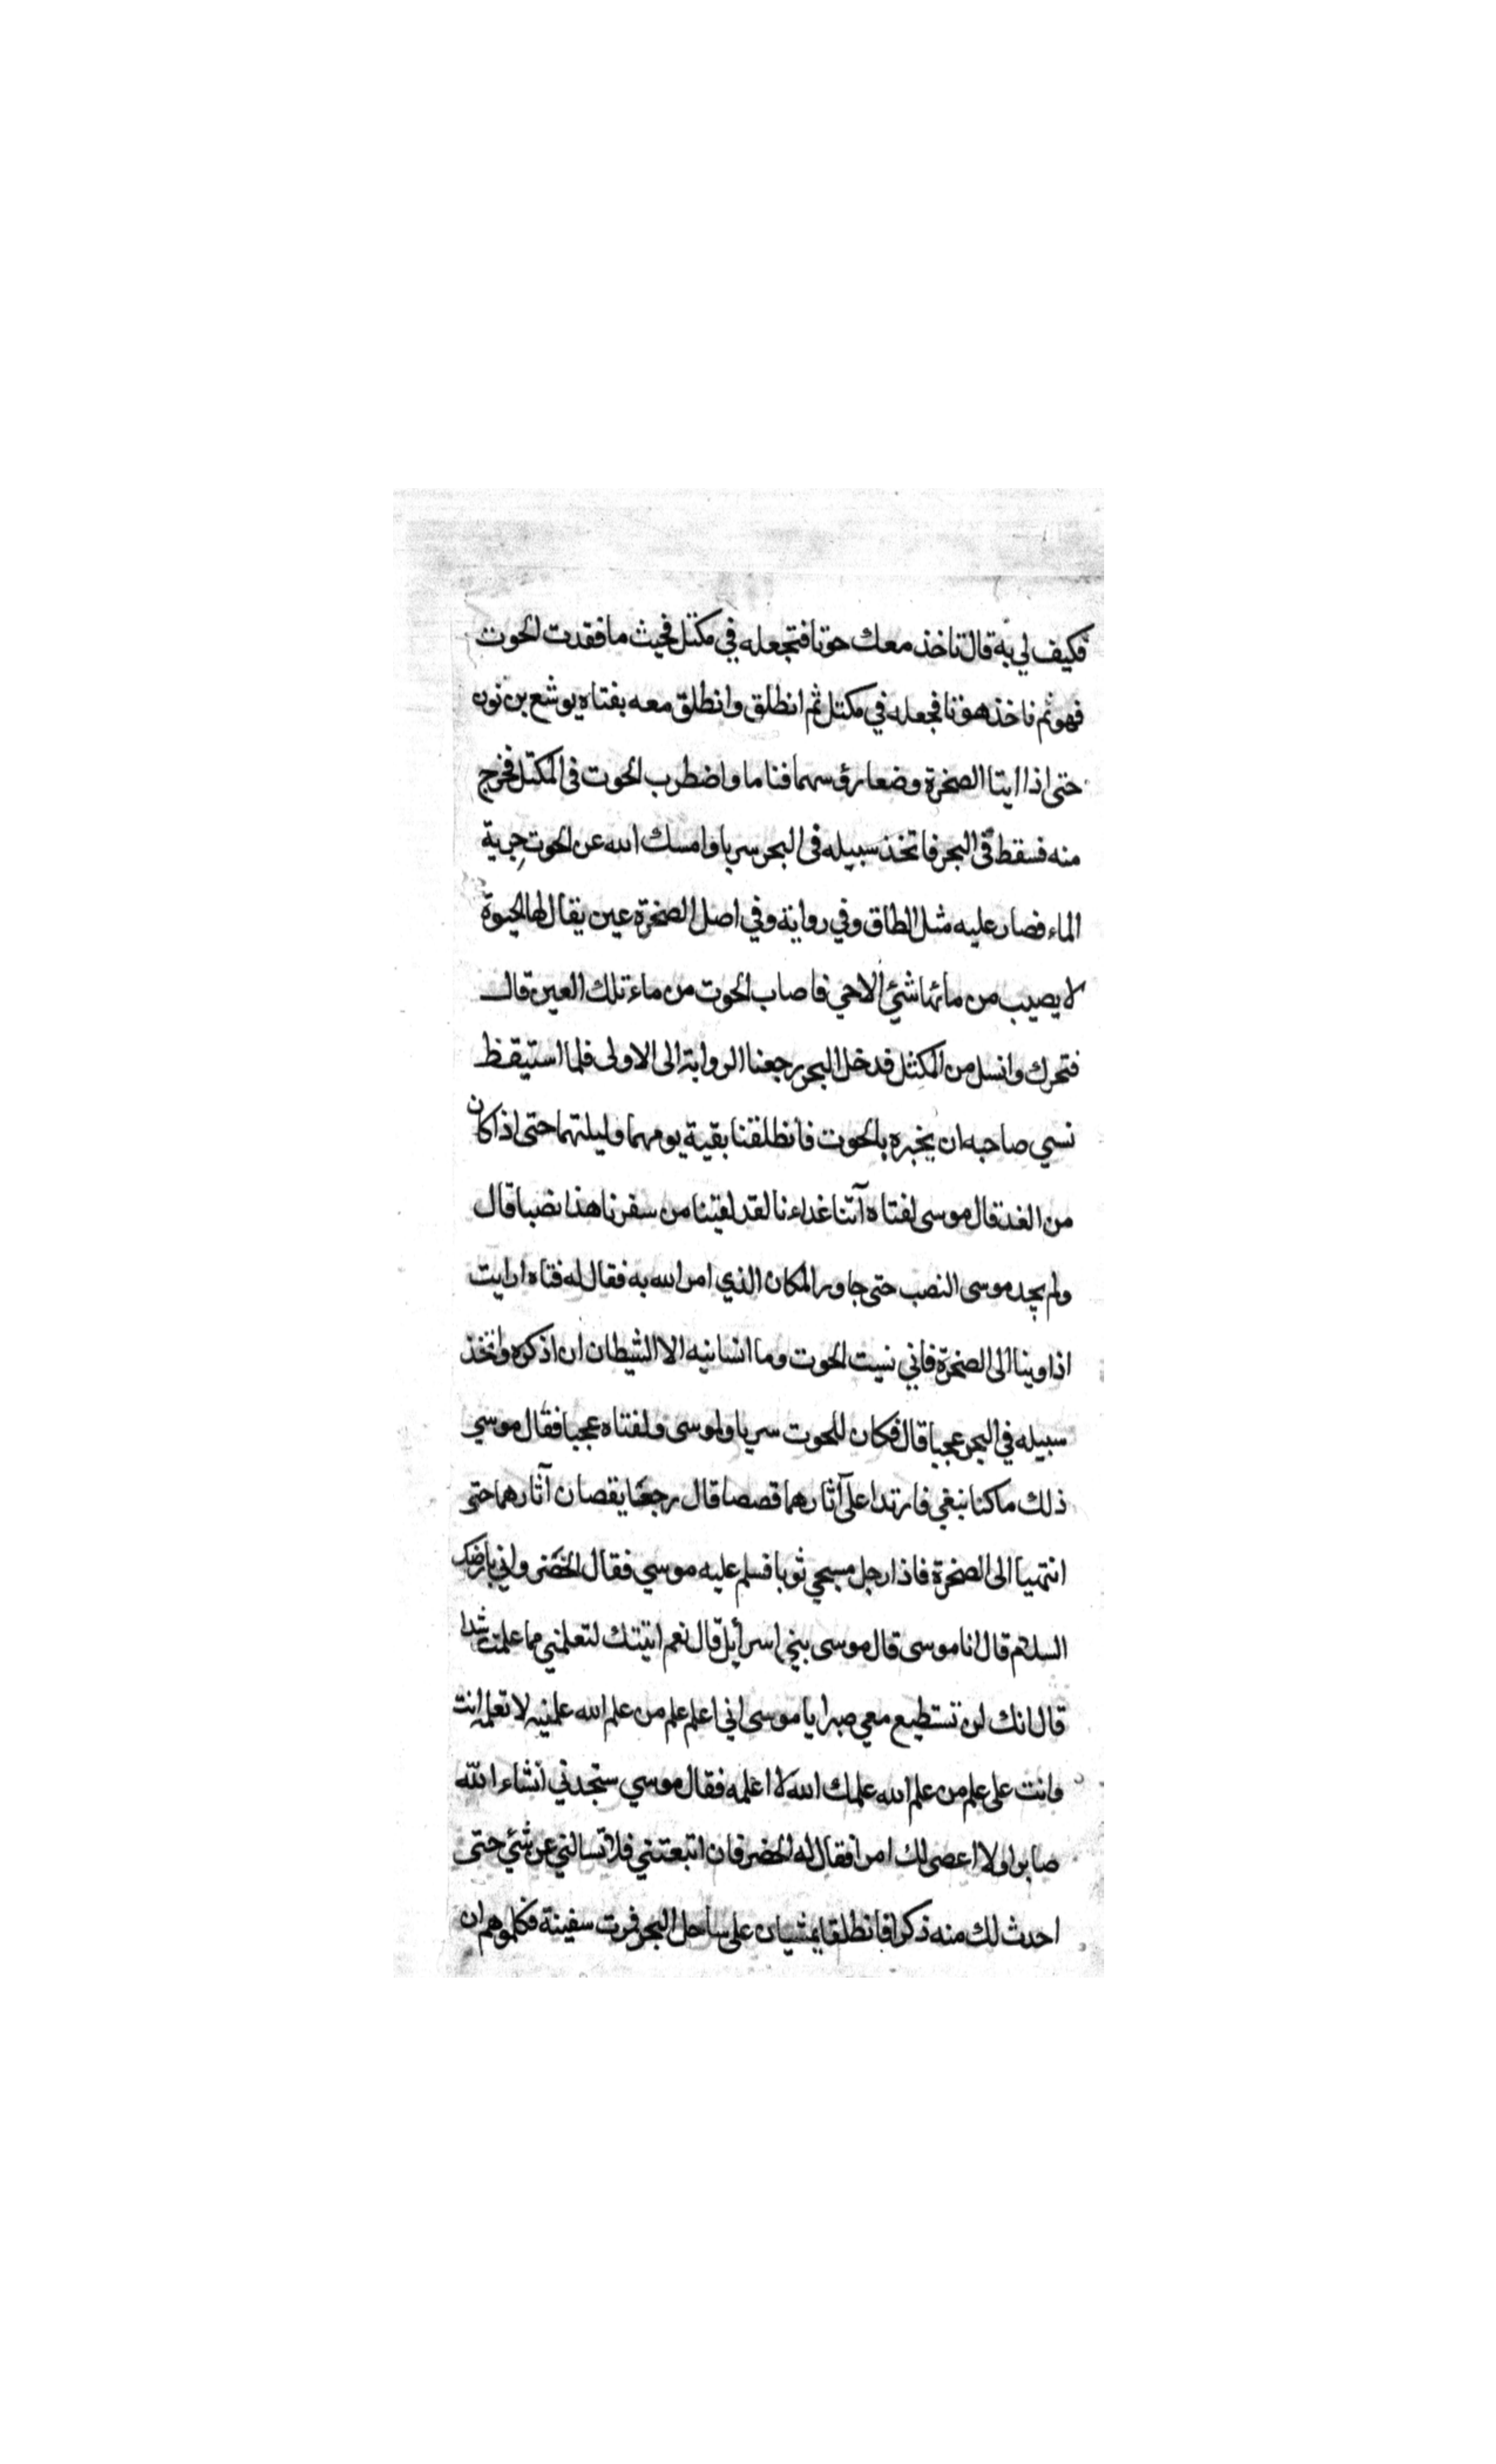 فكيف لي به قال تاخذ معك حوتا فتجعله في مكتل فحيث ما فقدت الحوت
فهو ثم تاخذ حوتا فجعله في مكتل ثم انطلق وانطلق معه بفتاه يوشع بن نون
حتى اذا ايتا الصخرة وضعا رؤسهما فناما واضطرب الحوت في المكتل فخرج
منه فسقط في البحر فاتخذ سبيله في البحر سربا وامسك الله عن الحوت جرية
الماء فصار عليه مثل الطاق وفي رواية وفي اصل الصخرة عين يقال لها الحيوة
لا يصيب من مائها شئ الاحي فاصاب الحوت من ماء تلك العين قال
فتحرك وانسل من المكتل فدخل البحر رجعنا الرواية الى الاولى فلما استيقظ
نسي صاحبه ان يخبره بالحوت فانطلقنا بقية يومهما وليلتهما حتى اذا كان
من الغد قال موسى لفتاه آتنا غداءنا لقد لقينا من سفرنا هذا نصبا قال
ولم يجد موسى النصب حتى جاوز المكان الذي امر الله به فقال له فتاه ارايت
اذ اوينا الى الصخرة فاني نسيت الحوت وما انسانيه الا الشيطان ان اذكره واتخذ
سبيله في البحر عجبا قال فكان للحوت سربا ولموسى ولفتاه عجبا فقال موسي
ذلك ما كنا نبغي فارتدا على آثارهما قصصا قال رجعا يقصان آثارهما حتى
انتهيا الى الصخرة فاذا رجل مسجي ثوبا فسلم عليه موسي فقال الخضر واني بارضك
السلام قال انا موسى قال موسى بني اسرائيل قال نعم اتيتك لتعلمني مما علمت رشدا
قال انك لن تستطيع معي صبرا يا موسى اني اعلم علم من علم الله علمنيه لا تعلمه انت
وانت على علم من علم الله علمك الله لا اعلمه فقال موسي ستجدني انشاء الله
صابرا ولا اعصى لك امرا فقال له الخضر فان اتبعتني فلا تسالني عن شئ حتى
احدث لك منه ذكرا فانطلقا يمشيان على ساحل البحر فمرت سفينة فكلموهم ان